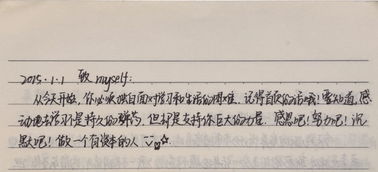 2015.1.1 致 myself:
从今天开始,你必须独自面对学习和生活的困难,记得首页的话哦!要知道,感
动地去学习是持久的,但却是支持你巨大的力量。感恩吧!努力吧!沉
默吧!做一个有资本的人